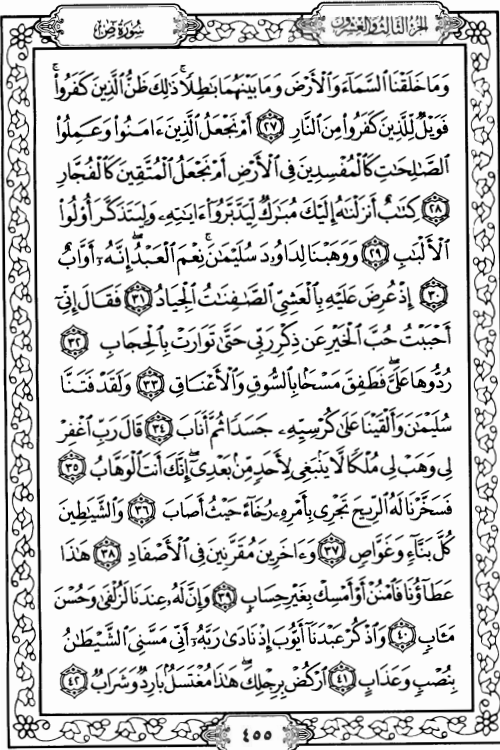 الجزء الثالث والعشرون
سورة ص
وَمَا خَلَقْنَا ٱلسَّمَآءَ وَٱلْأَرْضَ وَمَا بَيْنَهُمَا بَٰطِلًا ۚ ذَٰلِكَ ظَنُّ ٱلَّذِينَ كَفَرُوا۟ ۚ
فَوَيْلٌ لِّلَّذِينَ كَفَرُوا۟ مِنَ ٱلنَّارِ ﴿٢٧﴾ أَمْ نَجْعَلُ ٱلَّذِينَ ءَامَنُوا۟ وَعَمِلُوا۟
ٱلصَّٰلِحَٰتِ كَٱلْمُفْسِدِينَ فِى ٱلْأَرْضِ أَمْ نَجْعَلُ ٱلْمُتَّقِينَ كَٱلْفُجَّارِ
﴿٢٨﴾ كِتَٰبٌ أَنزَلْنَٰهُ إِلَيْكَ مُبَٰرَكٌ لِّيَدَّبَّرُوٓا۟ ءَايَٰتِهِۦ وَلِيَتَذَكَّرَ أُو۟لُوا۟
ٱلْأَلْبَٰبِ ﴿٢٩﴾ وَوَهَبْنَا لِدَاوُۥدَ سُلَيْمَٰنَ ۚ نِعْمَ ٱلْعَبْدُ ۖ إِنَّهُۥٓ أَوَّابٌ
﴿٣٠﴾ إِذْ عُرِضَ عَلَيْهِ بِٱلْعَشِىِّ ٱلصَّٰفِنَٰتُ ٱلْجِيَادُ ﴿٣١﴾ فَقَالَ إِنِّىٓ
أَحْبَبْتُ حُبَّ ٱلْخَيْرِ عَن ذِكْرِ رَبِّى حَتَّىٰ تَوَارَتْ بِٱلْحِجَابِ ﴿٣٢﴾
رُدُّوهَا عَلَىَّ ۖ فَطَفِقَ مَسْحًۢا بِٱلسُّوقِ وَٱلْأَعْنَاقِ ﴿٣٣﴾ وَلَقَدْ فَتَنَّا
سُلَيْمَٰنَ وَأَلْقَيْنَا عَلَىٰ كُرْسِيِّهِۦ جَسَدًا ثُمَّ أَنَابَ ﴿٣٤﴾ قَالَ رَبِّ ٱغْفِرْ
لِى وَهَبْ لِى مُلْكًا لَّا يَنۢبَغِى لِأَحَدٍ مِّنۢ بَعْدِىٓ ۖ إِنَّكَ أَنتَ ٱلْوَهَّابُ ﴿٣٥﴾
فَسَخَّرْنَا لَهُ ٱلرِّيحَ تَجْرِى بِأَمْرِهِۦ رُخَآءً حَيْثُ أَصَابَ ﴿٣٦﴾ وَٱلشَّيَٰطِينَ
كُلَّ بَنَّآءٍ وَغَوَّاصٍ ﴿٣٧﴾ وَءَاخَرِينَ مُقَرَّنِينَ فِى ٱلْأَصْفَادِ ﴿٣٨﴾ هَٰذَا
عَطَآؤُنَا فَٱمْنُنْ أَوْ أَمْسِكْ بِغَيْرِ حِسَابٍ ﴿٣٩﴾ وَإِنَّ لَهُۥ عِندَنَا لَزُلْفَىٰ وَحُسْنَ
مَـَٔابٍ ﴿٤٠﴾ وَٱذْكُرْ عَبْدَنَآ أَيُّوبَ إِذْ نَادَىٰ رَبَّهُۥٓ أَنِّى مَسَّنِىَ ٱلشَّيْطَٰنُ
بِنُصْبٍ وَعَذَابٍ ﴿٤١﴾ ٱرْكُضْ بِرِجْلِكَ ۖ هَٰذَا مُغْتَسَلٌۢ بَارِدٌ وَشَرَابٌ ﴿٤٢﴾
٤٥٥